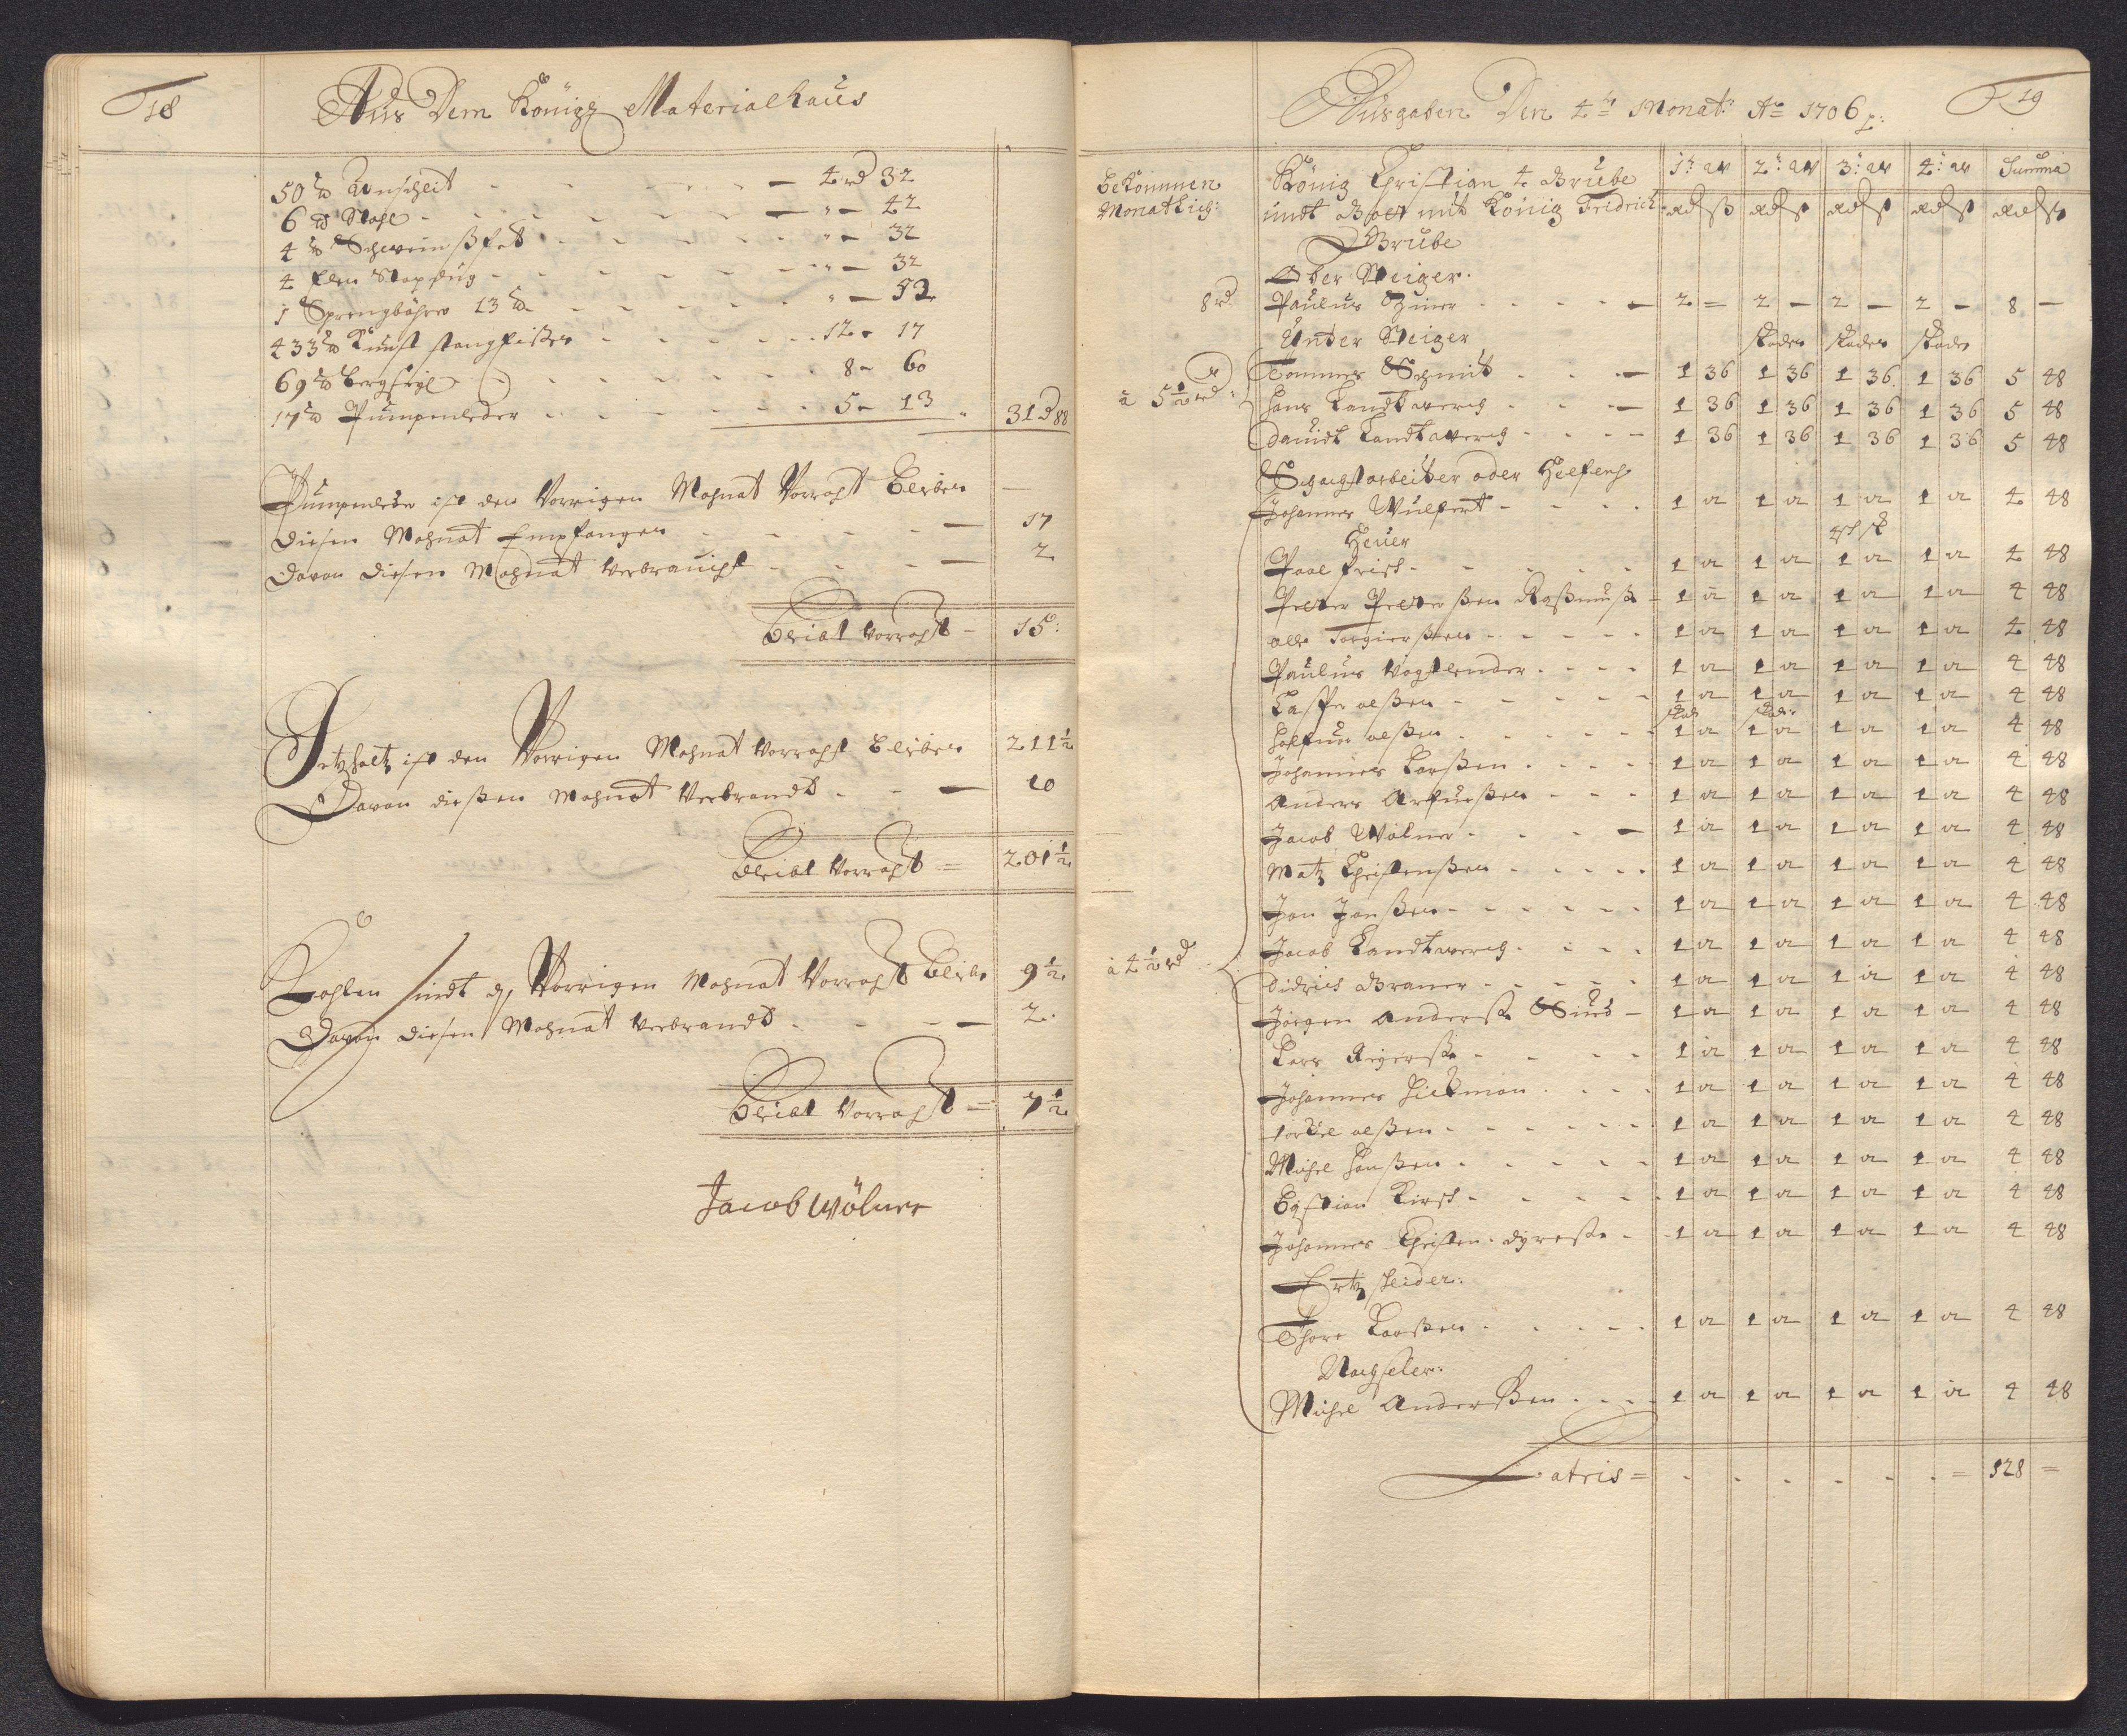 18
Aus Dem Königl Materialhaus
50 ℔ Unscheit - - - - - 4 rd 32
6 ℔ Stahl - - - - - " - 42
4 ℔ Schweinßfet - - - - - " - 32
4 Elen - - - - - " - 32
1 Sprengböhrer 13 ℔ - - - - " - 52
433 ℔ Kunst - - - - 12 - 17
69 ℔ - - - - - 8 - 60
17 ℔ Pumpenleder - - - - - 5 - 13 31 d 88
Pumpenleder ist den Vorrigen Mohnat Vorraht Bleiben —
Diesen Mohnat Empfangen - - - - 17
Davon diesen Mohnat Verbraucht - - - - 2
Bleibt Vorraht - 15:
Setzholtz ist den Vorrigen Mohnat Vorraht Bleiben 211½
Davon dießen Mohnat Verbrandt - - - 10
Bleibt Vorraht = 201½
Kohlen sindt d. Vorrigen Mohnat Vorraht Bleibe 9½
Davon diesen Mohnat Verbrandt - - - 2.
Bleibt Vorraht = 7½
Jacob Wölner
19
Ausgaben Den 4te Monat: Ao 1706
Bekommen
Monathlich:
König Christian 4 Grube 1: W 2: W 3: W 4: W Summa
undt Boer mit König Fridrich Rd ß Rd ß Rd ß Rd ß Rd ß
Grube
Ober Steiger.
8 rd Paulus - - - - 2 = 2 — 2 — 2 — 8 —
Under Steiger
Tommes Schmit - - - 1 36 1 36 1 36 1 36 5 48
a 5½ rd Hans Landtwerg - - - 1 36 1 36 1 36 1 36 5 48
Dauidt Landtwerg - - - - 1 36 1 36 1 36 1 36 5 48
Schachtarbeiter oder Helfers
Johannes Wulfert - - - - 1 12 1 12 1 12 1 12 4 48
Heuer
Paal Frish - - - - - 1 12 1 12 1 12 1 12 4 48
Petter Petterßen Raßmuß - 1 12 1 12 1 12 1 12 4 48
Olle Torgierßen - - - - - 1 12 1 12 1 12 1 12 4 48
Paulus Vogtlender - - - - 1 12 1 12 1 12 1 12 4 48
Casper olßen - - - - - 1 12 1 12 1 12 1 12 4 48
Halfuor olßen - - - - - 1 12 1 12 1 12 1 12 4 48
Johannes Larßen - - - - 1 12 1 12 1 12 1 12 4 48
Anders Arfueßen - - - - 1 12 1 12 1 12 1 12 4 48
Jacob Wölner - - - - 1 12 1 12 1 12 1 12 4 48
Matz Christenßen - - - - - 1 12 1 12 1 12 1 12 4 48
Jon Jonßen - - - - - - 1 12 1 12 1 12 1 12 4 48
a 4½ rd Jacob Landtwerg - - - - 1 12 1 12 1 12 1 12 4 48
Didrich Braner - - - - - 1 12 1 12 1 12 1 12 4 48
Jörgen Anderß - 1 12 1 12 1 12 1 12 4 48
Lars - - - - 1 12 1 12 1 12 1 12 4 48
Johannes Hickman - - - - 1 12 1 12 1 12 1 12 4 48
Torkel olßen - - - - - - 1 12 1 12 1 12 1 12 4 48
Michel Hanßen - - - - - 1 12 1 12 1 12 1 12 4 48
Bastian Kirsh - - - - - 1 12 1 12 1 12 1 12 4 48
Johannes Christen - 1 12 1 12 1 12 1 12 4 48
Ertz Scheider:
Thore Larßen - - - - - 1 12 1 12 1 12 1 12 4 48
Nachseler:
Michel Anderßen - - - - 1 12 1 12 1 12 1 12 4 48
Latris = - - - - - - - = 128 =